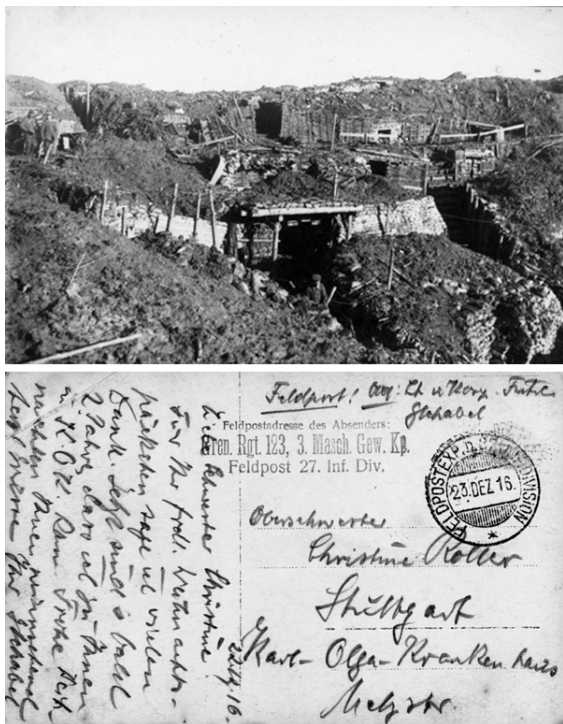 Feldpost! Abs:
Feldpostadresse des Absenders:
Gren. Rgt. 123, 3. Masch. Gew. Kp.
Feldpost 27. Inf. Div.
FELDPOSTEXP. D. DIVISION
23.DEZ.16.
Oberschwester
Christine Koller
Stuttgart
Karl-Olga-Krankenhaus
Metzstr.
22.12.16.
Schwester Christine!
Für Ihr frdl. Weihnachts-
päckchen sage ich vielen
Dank. Jetzt sind's bald
2 Jahre, dass ich zu Ihnen
K.O.K. kam. Frohe Weih-
nachten Ihnen wünschend
Ihr Schabel